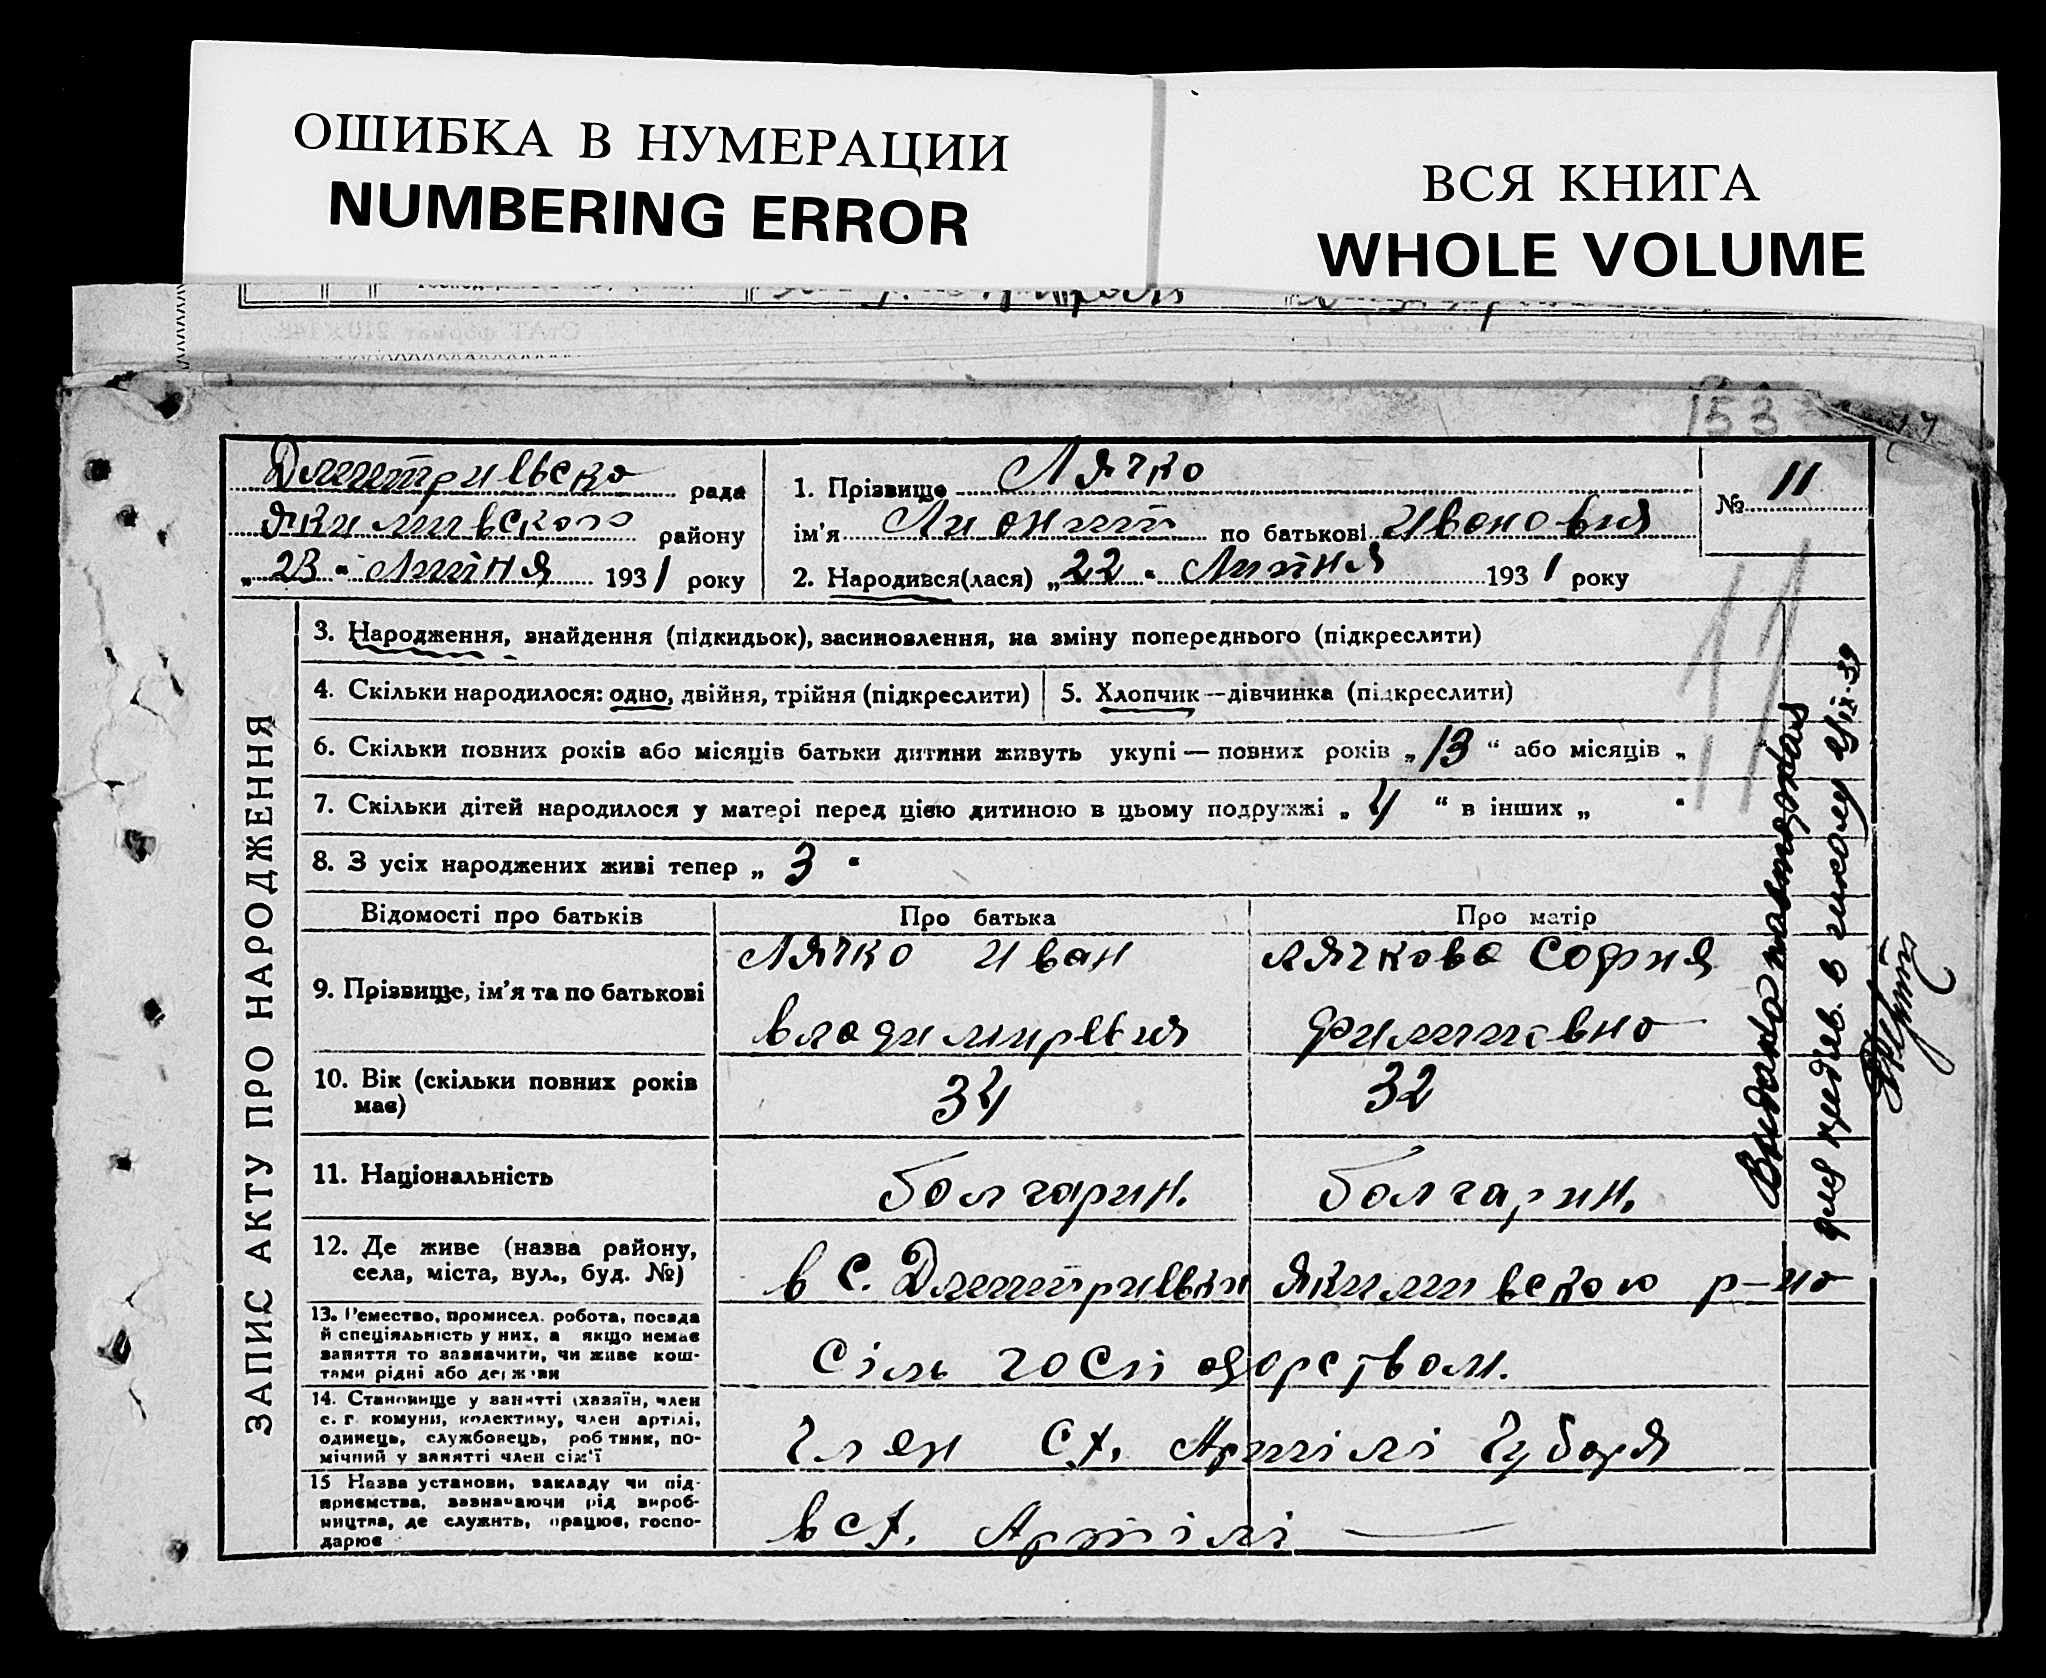 ОШИБКА В НУМЕРАЦИИ
NUMBERING ERROR
ВСЯ КНИГА
WHOLE VOLUME
153
Дмитрильска рада
Якимивского району
„23" Липня 1931 року
1. Прізвище Лячко
ім'я Лионит по батькові Ивановия
2. Народився(лася) „22" Липня 1931 року
№ 11
11
ЗАПИС АКТУ ПРО НАРОДЖЕННЯ
3. Народження, знайдення (підкидьок), засиновлення, на зміну попереднього (підкреслити)
4. Скільки народилося: одно, двійня, трійня (підкреслити)
5. Хлопчик—дівчинка (підкреслити)
6. Скільки повних років або місяців батьки дитини живуть укупі — повних років „13" або місяців „
7. Скільки дітей народилося у матері перед цією дитиною в цьому подружжі „4" в інших „ "
8. З усіх народжених живі тепер „3"
Відомості про батьків Про батька Про матір
9. Прізвище, ім'я та по батькові
Лячко Иван
владимиревия
Лячкова София
Филипавна
10. Вік (скільки повних років має)
34 32
11. Національність
болгарин. болгарин.
12. Де живе (назва району,
села, міста, вул., буд. №)
в с. Дмитрильки Якимивською р-на
13. Ремество, промисел. робота, посада
й спеціяльність у них, а якщо немає
заняття то зазначити, чи живе кош-
тами рідні або держави
Сіль господорством.
14. Становище у занятті (хазяїн, член
с. г. комуни, колективу, член артілі,
одинець, службовець, робітник, по-
мічний у занятті член сім'ї
Член с.г. Артілі
15 Назва установи, закладу чи під-
приємства, зазначаючи рід вироб-
ництва, де служить, працює, госпо-
дарює
в сг. Артілі
Видано
для в школу